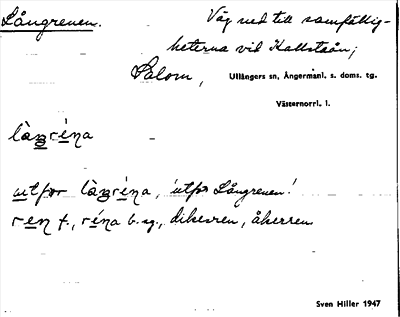 Långrenen.
Väg ned till samfällig-
heterna vid Kallstaån;
Salom,
Ullångers sn, Ångermanl. s. doms. tg.
Västernorrl. l.
làŋréna
utfor làŋréna, 'utför Långrenen'
ren f., réna b. sg., dikesren, åkerren
Sven Hiller 1947